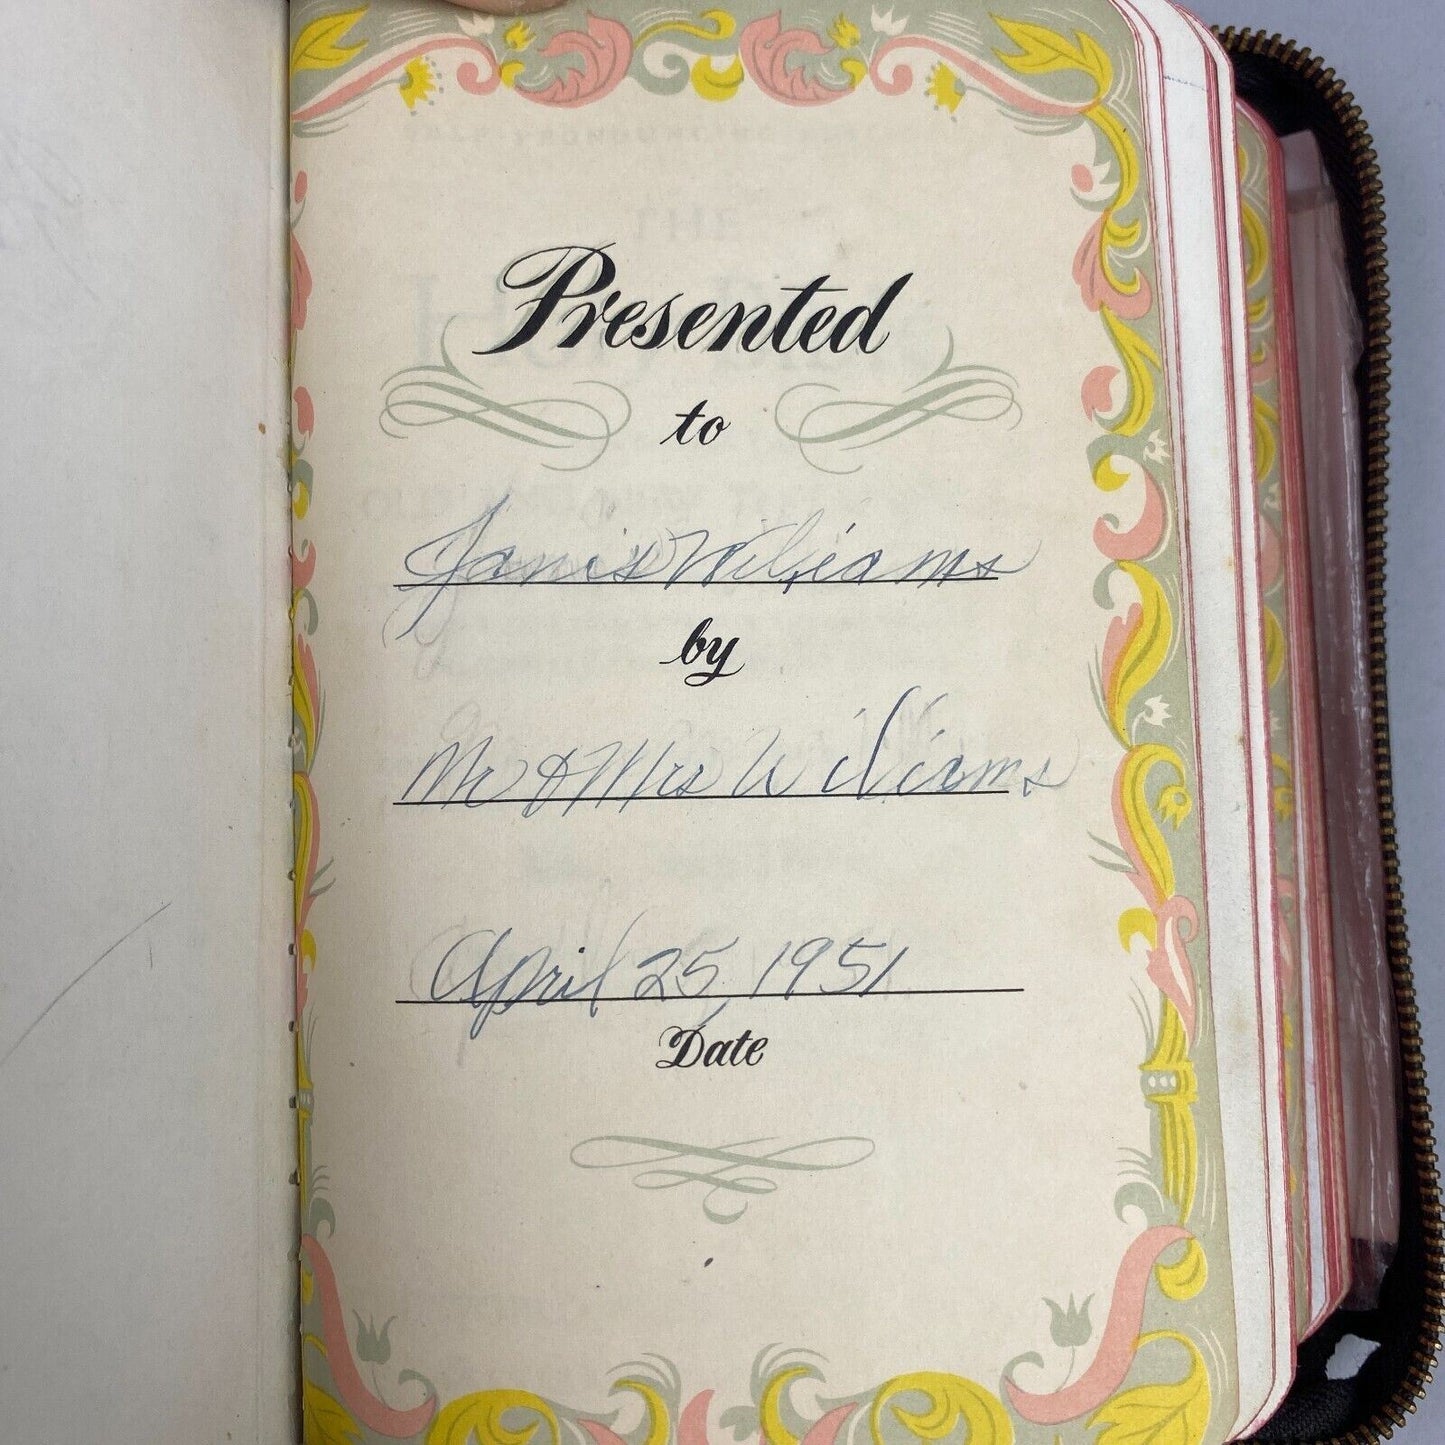 Presented
to
Janis Williams
by
Mr & Mrs Williams
April 25, 1951
Date